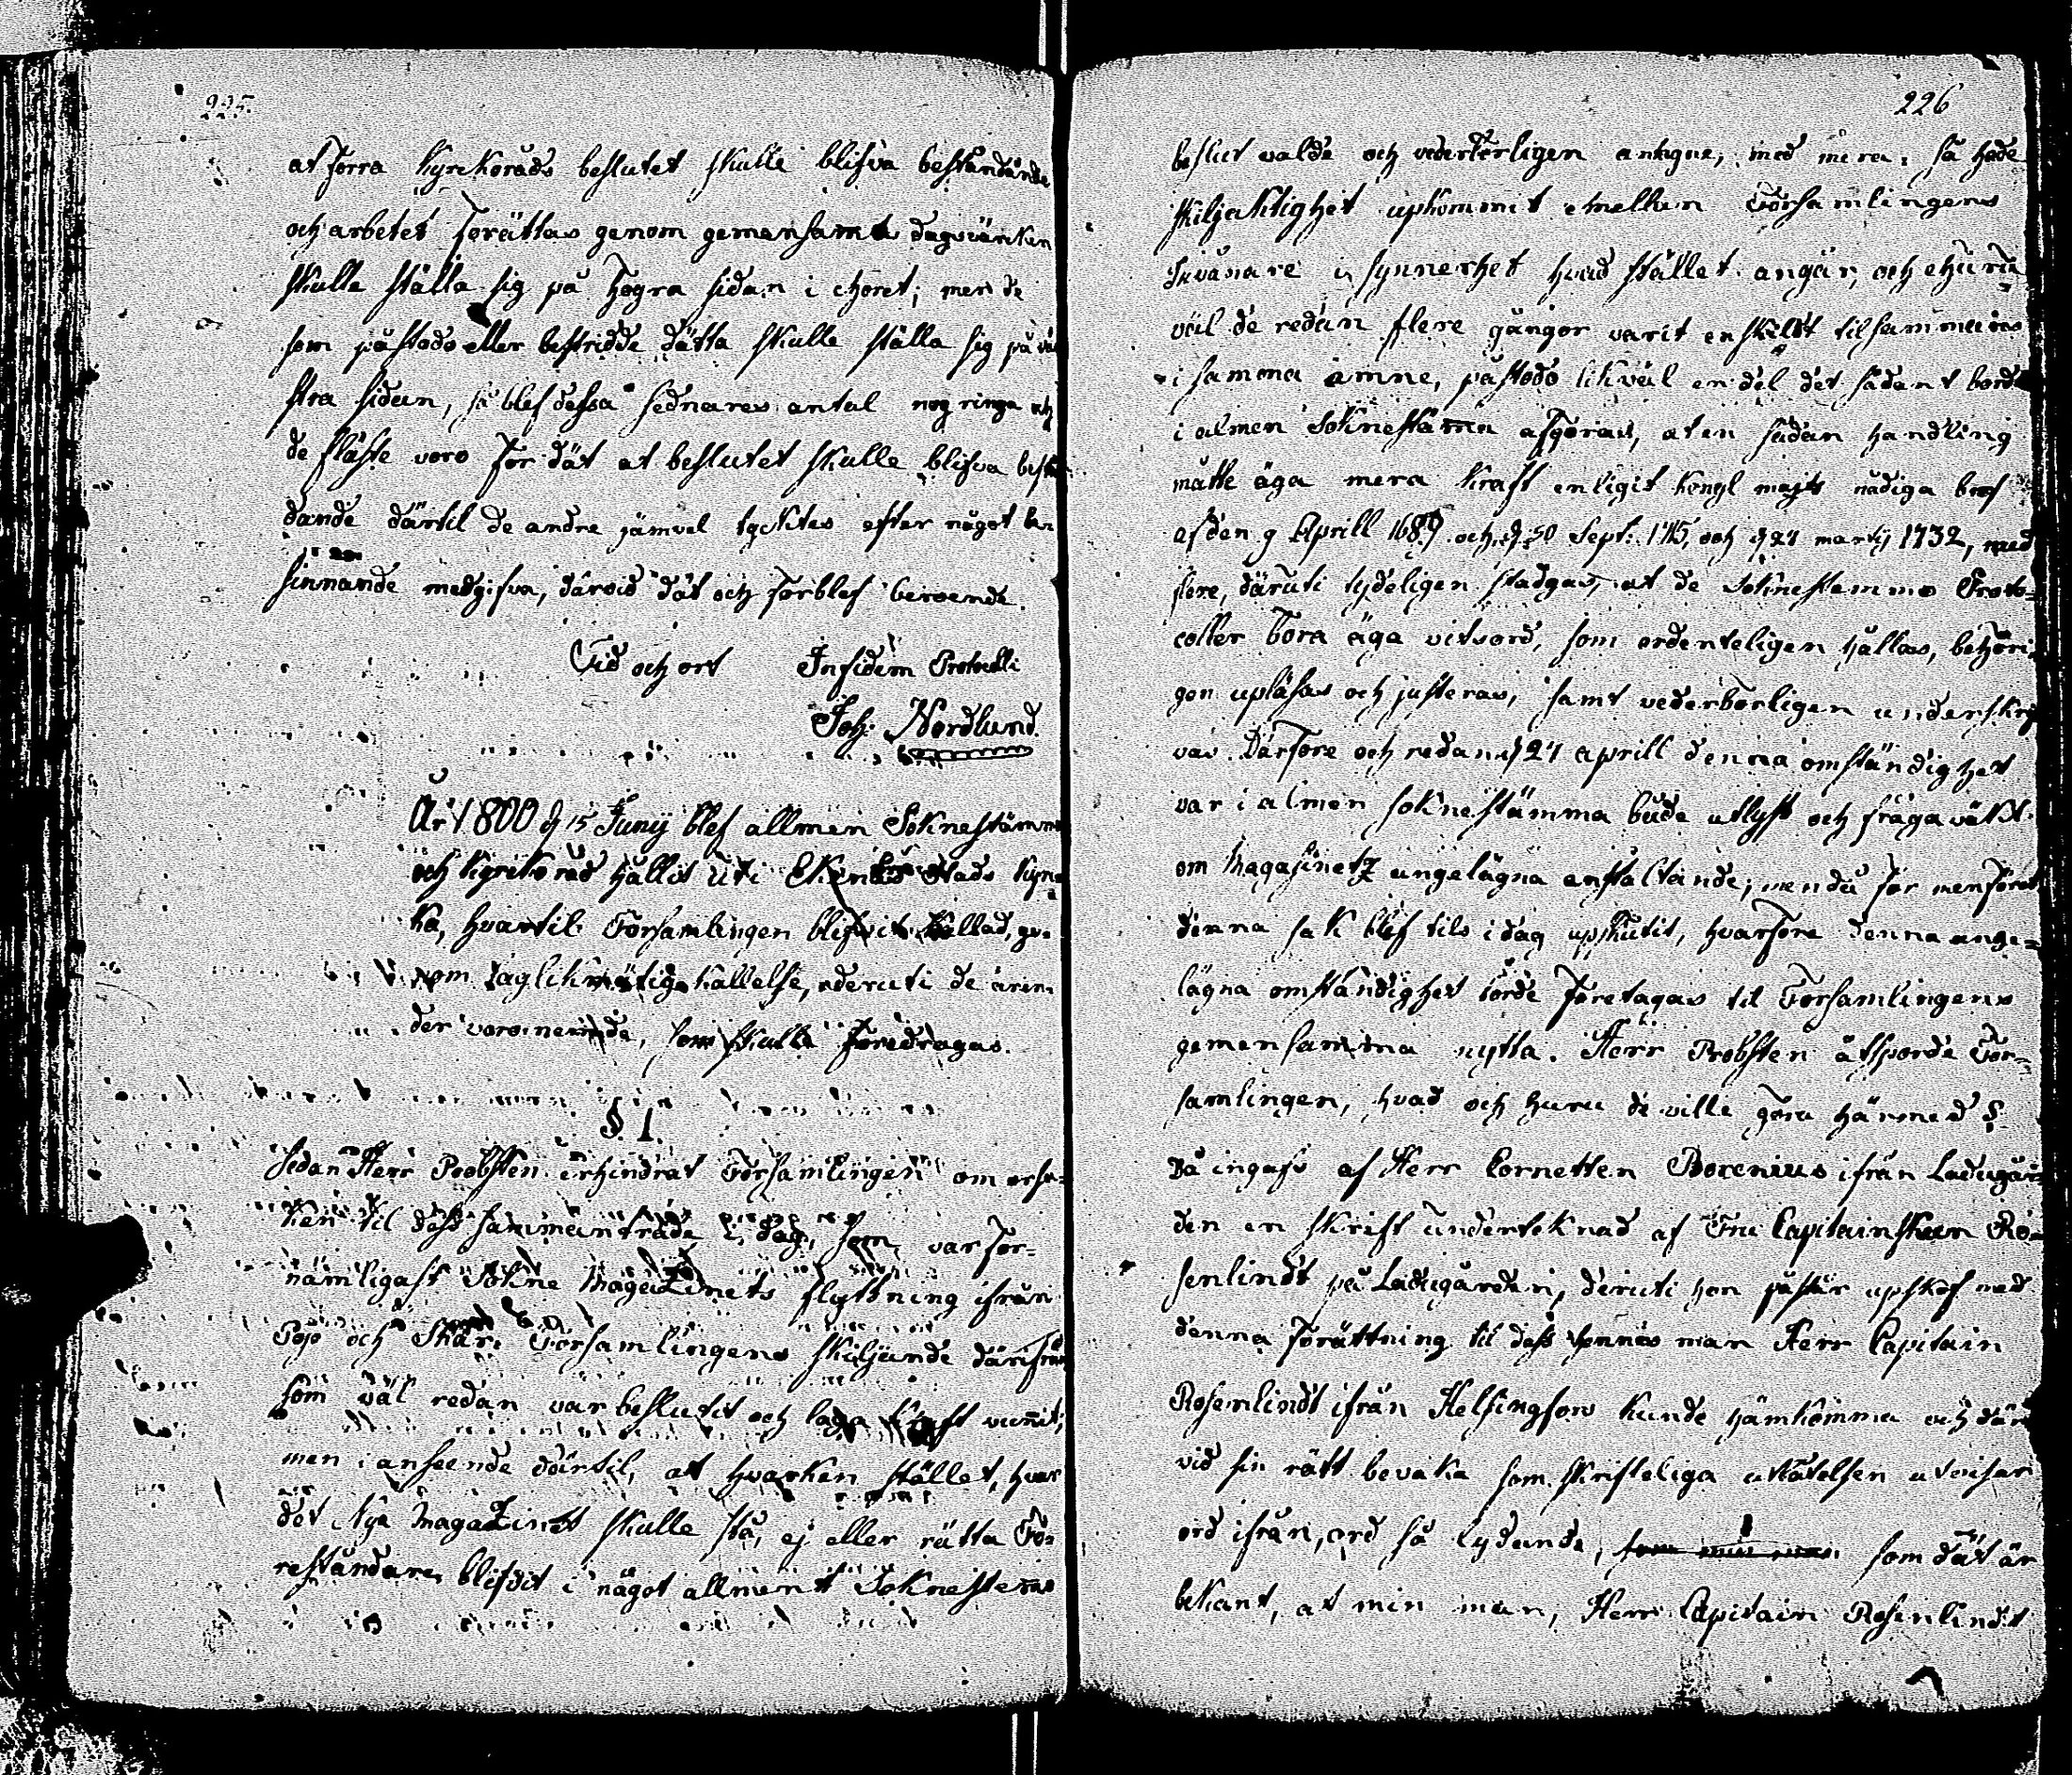 225.
at förra Kyrckoråds beslutet skulle blifva beståndande
och arbetet förättas genom gemensamt dagsvärken
skulle ställa sig på högra sidan i choret; men de
som påstodo eller bestridde dätta skulle ställa sig på vän
stra sidan, så blef dessa sednares antal nog ringa och
de fläste voro för dät at beslutet skulle blifva bestå
dande därtil de andre jämvel tycktes efter något be
sinnande medgifva, därvid dät och förblef beroende.
Tid och ort In fidem Protocolli
Joh: Nordlund.
År 1800 d 15 Junij blef allmen Soknestämma
och Kyrkoråd hållit uti Ekenäs Stads Kyrc
ka, hvartil Församlingen blifvit kallad, ge-
nom laglikmätig kallelse, deruti de ären
der voro nemnde, som skulle föredragas.
§. 1.
Sedan Herr Probsten erhindrat Församlingen om orsa-
ken til dess sammanträde i dag, som var för-
nämligast Sokne Magazinets flyttning ifrån
Pojo och Skär: Församlingens skiljande därifrån
som väl redan var beslutit och laga kraft vunnit;
men i anseende därtil, at hvarken stället, hvar
det Nya Magazinet skulle stå, ej eller rätta Fö-
reståndare, blifvit i något allment Soknestemmo
226
beslut valde och vederbörligen antagne, med mera, så hade
skiljaktighet upkommit emellan Församlingens
Invånare i synnerhet hvad stället angår, och ehuru
väl de redan flere gångor varit enskildt tilsammans
i samma ämne, påstodo likväl en del det sådant borde
i almen Soknestämma afgöras, at en sådan handling
måtte äga mera kraft enligit Kongl majts nådiga bref
af den 9 Aprill 1689. och d 30 Sept: 1715, och d 27 martij 1732, med
flere, däruti tydeligen stadgas, at de Soknestemmo Proto-
coller böra äga vitsord, som ordenteligen hållas, behöri-
gen upläsas och justeras, samt vederbörligen underskrif
vas. Därföre och redan d 27 aprill denna omständighet
var i almen soknestämma både utlyst och fråga väkt
om Magasinetz angelägna anstaltande; men då för menföret
denna sak blef tils i dag upskutit, hvarföre denna ange-
lägna omständighet torde företagas til Församlingens
gemensamma nytta. Herr Probsten åtsporde För-
samlingen, hvad och huru de ville göra härmed?
Då ingafs af Herr Cornetten Borenius ifrån Ladugår-
den en skrift underteknad af Fru Capitainskan Ro-
senlindt på Ladugården, deruti hon påstår upskof med
denna förättning til dess hennes man Herr Capitain
Rosenlindt ifrån Helsingfors kunde hämkomma och där
vid sin rätt bevaka som skrifteliga utlåtelsen utvisar
ord ifrån ord så lydande, som dät är
bekant, at min man, Herr Capitain Rosenlindt